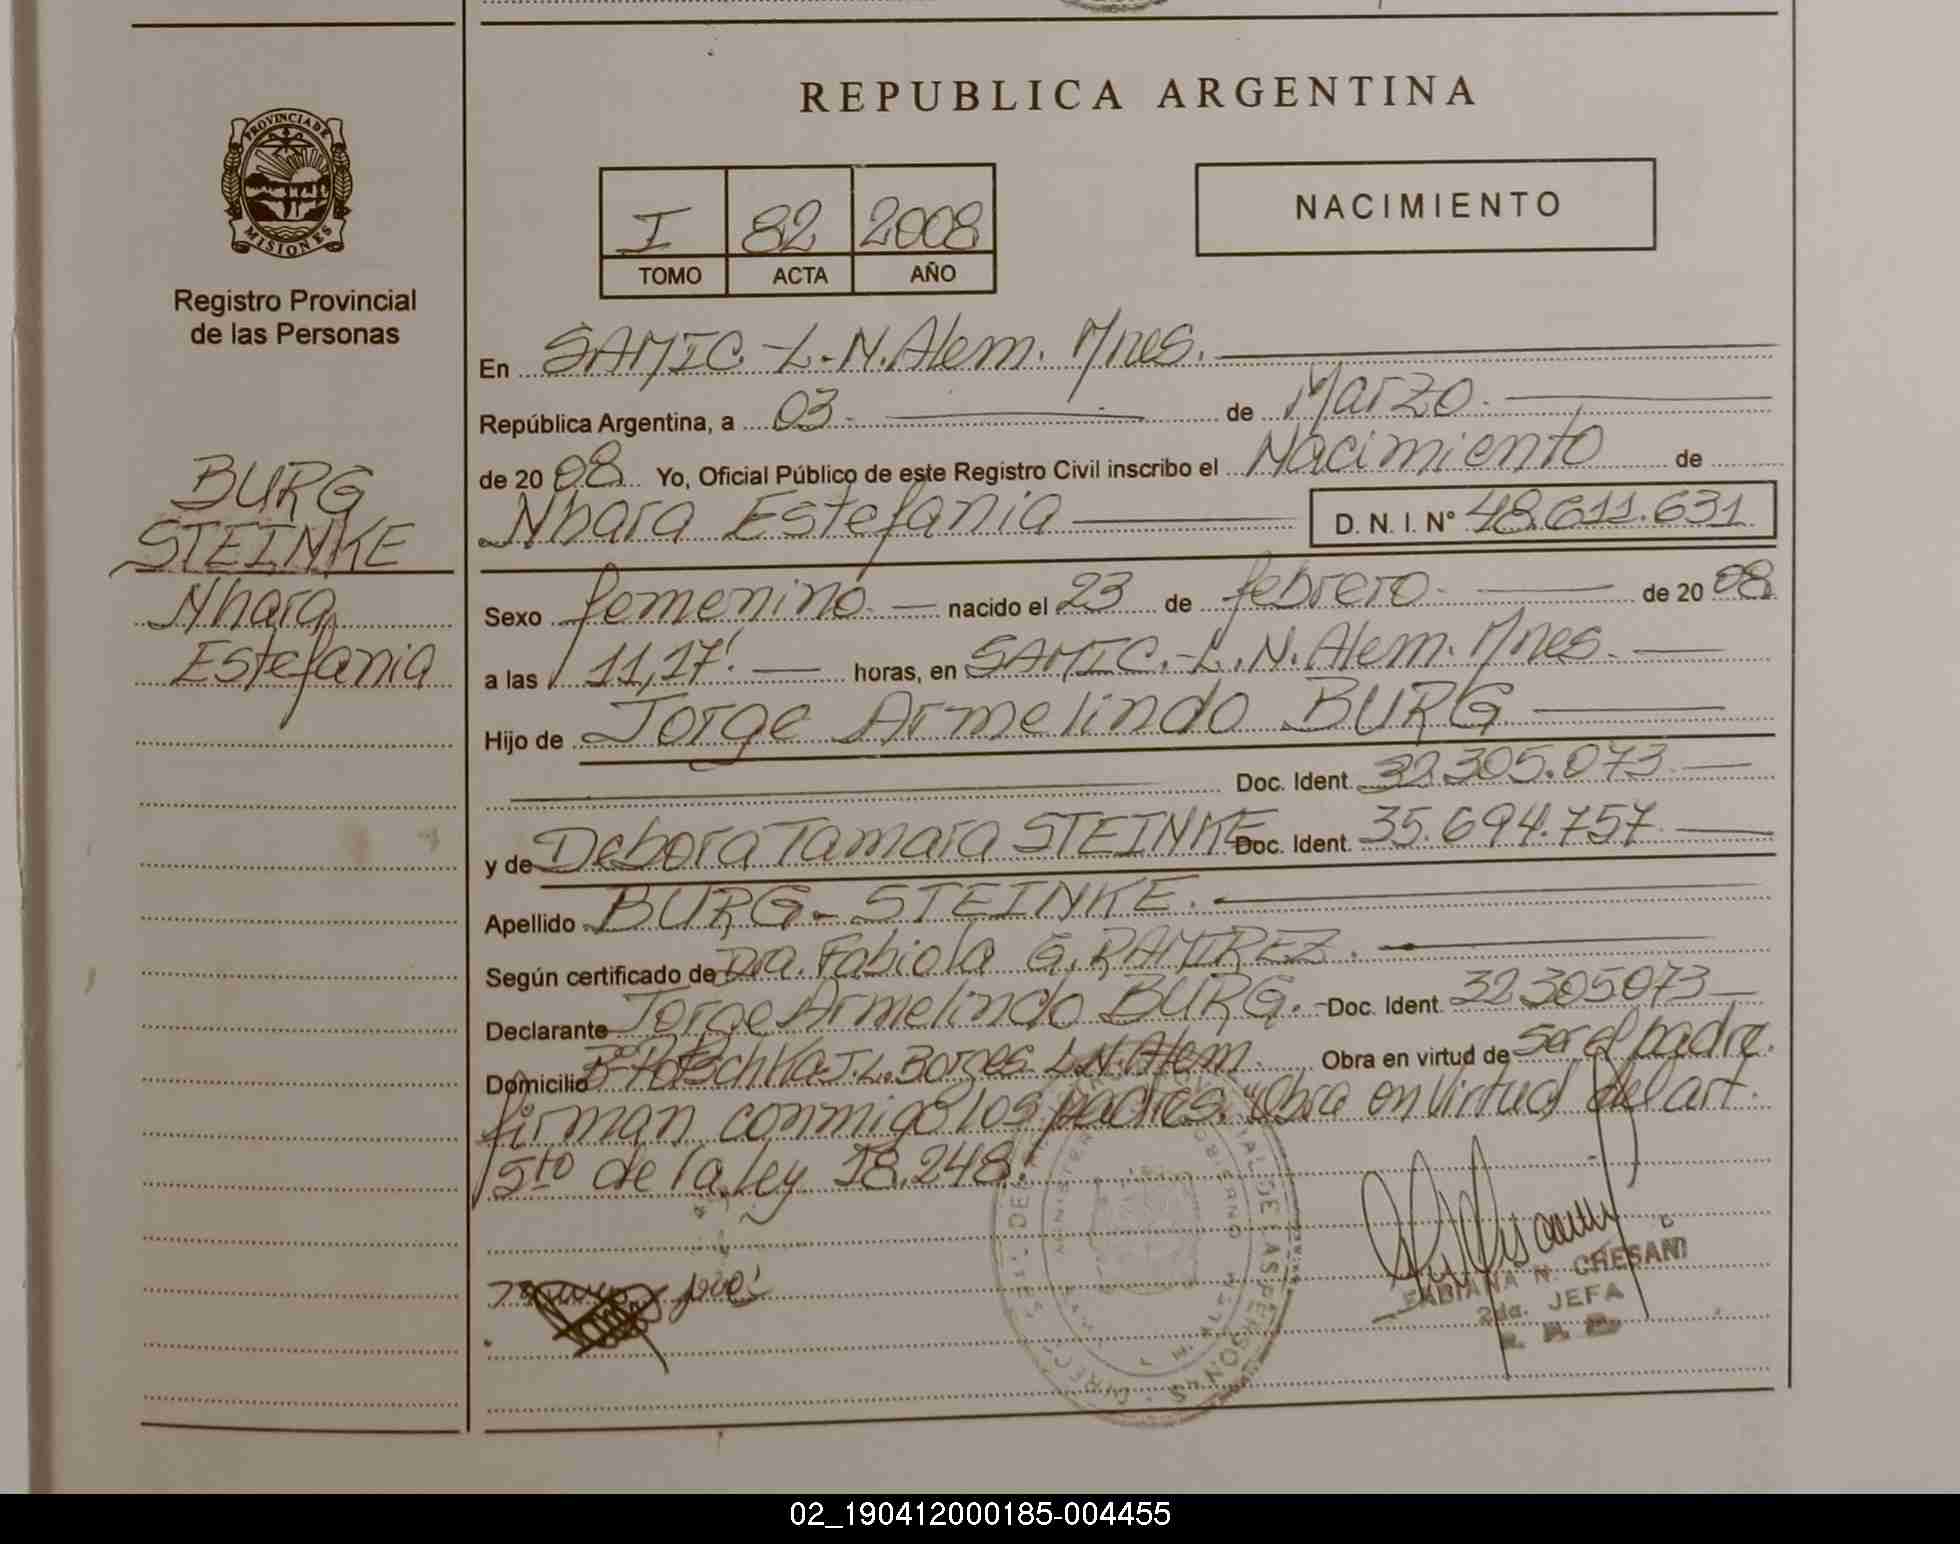 REPUBLICA ARGENTINA
PROVINCIA DE
MISIONES
Registro Provincial
de las Personas
I 82 2008
TOMO ACTA AÑO
NACIMIENTO
BURG
STEINKE
Nhara
Estefania
En SAMIC.-L.N.Alem. Mnes.
República Argentina, a 03.- de Marzo.
de 20 08 Yo, Oficial Público de este Registro Civil inscribo el Nacimiento de
Nhara Estefania D. N. I. N° 48.611.631
Sexo femenino.- nacido el 23 de febrero. de 20 08
a las 11,17'. horas, en SAMIC.-L.N.Alem. Mnes.
Hijo de Jorge Armelindo BURG
Doc. Ident. 32.305.073.
y de Debora Tamara STEINKE Doc. Ident. 35.694.757.
Apellido BURG- STEINKE.
Según certificado de Dra. Fabiola G. RAMIREZ.
Declarante Jorge Armelindo BURG.- Doc. Ident. 32305073
Domicilio J.L.Borges L.N.Alem. Obra en virtud de ser el padre.
firman conmigo los padres. "Obra en virtud del art.
5to de la ley 18.248."
FABIANA N. CRESANI
2da. JEFA
02_190412000185-004455